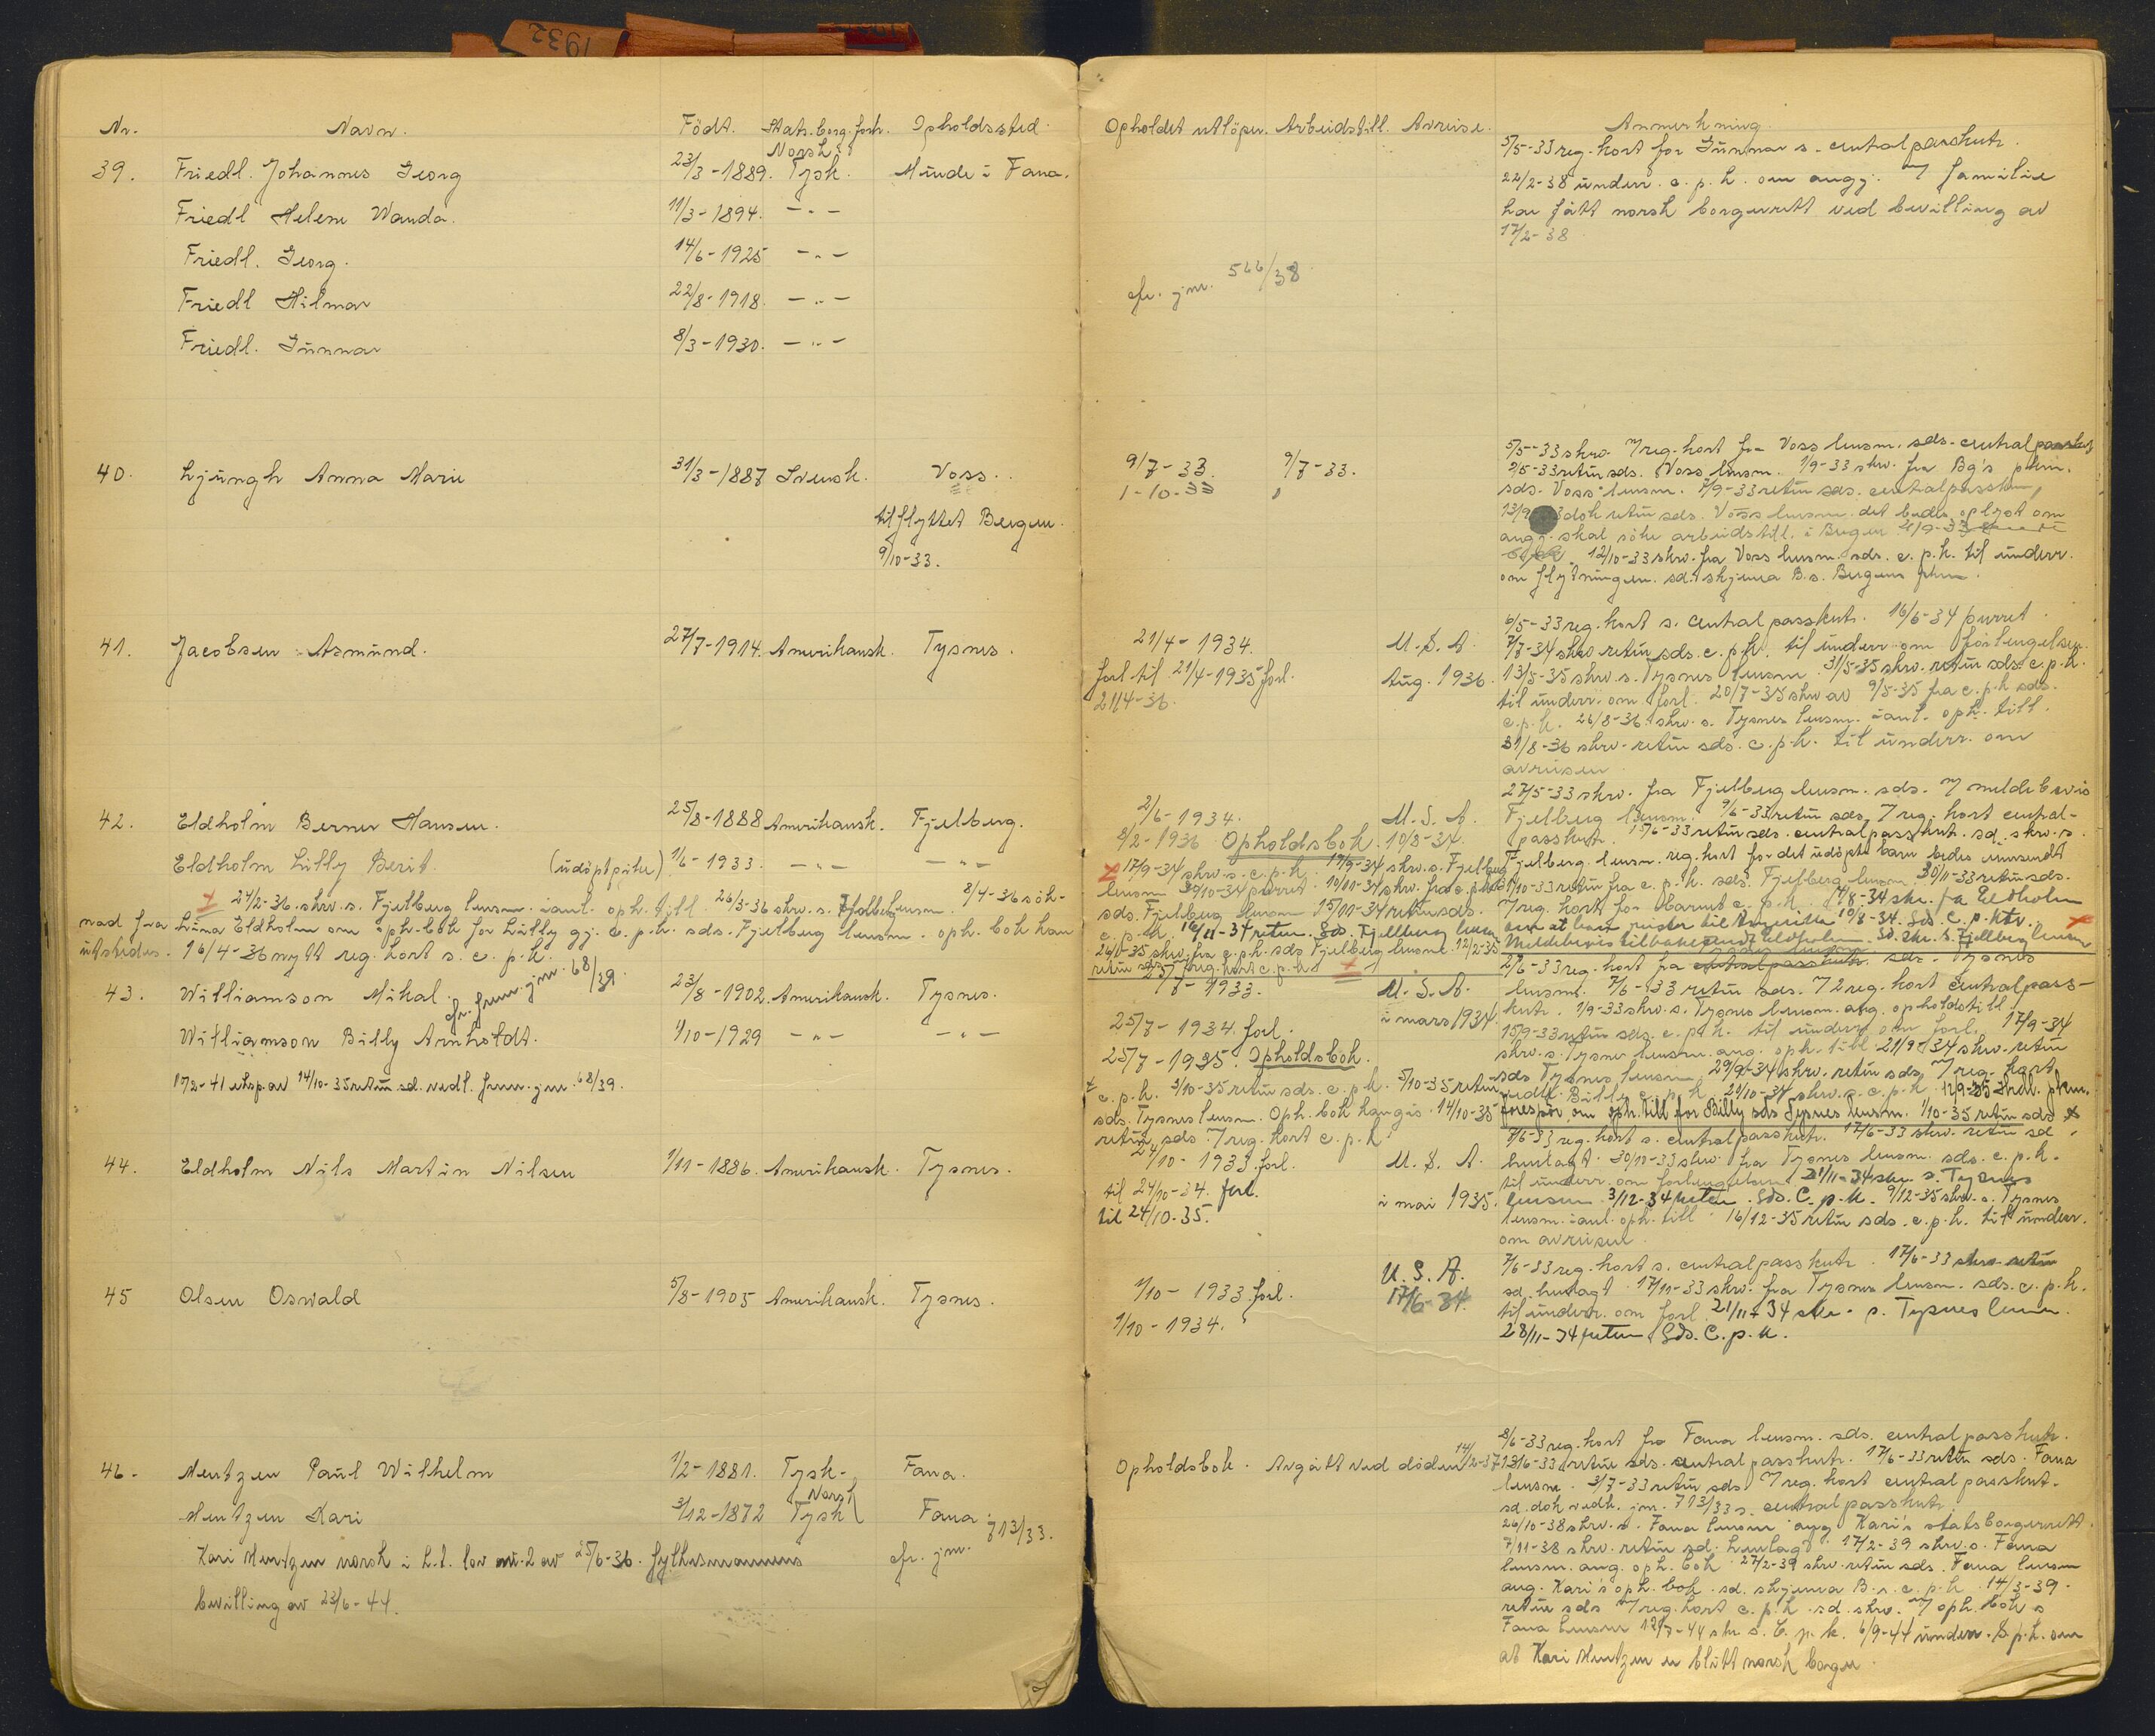 1932
Nr. Navn. Födt. Stats.borg.forh. Opholdssted.
39. Friedl. Johannes Georg 23/3-1889. Norsk Tysk. Minde i Fana.
Friedl Helene Wanda. 11/3-1894. -"-
Friedl. Georg. 14/6-1925 -"-
Friedl Hilmar 22/8-1918. -"-
Friedl. Gunnar 8/3-1930. -"-
40. Ljungh Anna Marie 31/3-1887 Svensk. Voss.
tilflyttet Bergen
9/10-33.
41. Jacobsen Asmund. 27/7-1914. Amerikansk. Tysnes.
42. Eldholm Berner Hansen. 25/8-1888 Amerikansk. Fjelberg.
Eldholm Lilly Berit (udöpt pike) 1/6-1933. -"- -"-
x 24/2-36 skrv. s. Fjelberg lensm. ianl. oph. till. 26/3-36 skrv. s. Fjelberg lensm. 8/4-36 sök-
nad fra Lina Eldholm om oph-bok for Lilly gj. c.p.k. sds. Fjelberg lensm. oph. bok kan
utstedes. 16/4-36 nytt reg. kort s. c.p.k.
43. Williamson Mihal. cfr. frem. jnr. 68/39. 23/8-1902. Amerikansk. Tysnes.
Williamson Billy Arnholdt. 1/10-1929 -"- -"-
17/2-41 eksp. av 14/10-35 retur sd. vedl. frem. jnr. 68/39.
44. Eldholm Nils Martin Nilsen 1/11-1886. Amerikansk. Tysnes.
45 Olsen Oswald 5/8-1905 Amerikansk. Tysnes.
46. Mentzen Paul Wilhelm 1/2-1881. Tysk. Fana.
Mentzen Kari 3/12-1872 Norsk Tysk Fana.
Kari Mentzen norsk i h.t. lov nr. 2 av 25/6-36. fylkesmannens cfr. jnr. 713/33.
bevilling av 23/6-44.
Opholdet utlöper. Arbeidstill. Avreise. Anmerkning.
5/5-33 reg. kort for Gunnar s. centralpasskntr.
22/2-38 underr. c.p.k. om angj. 7 familie
har fått norsk borgerrett ved bevilling av
17/2-38
cfr. jnr. 566/38
5/5-33 skrv. 7 reg. kort fra Voss lensm. sds. centralpasskntr
9/7-33. 9/7-33. 9/5-33 retur sds. Voss lensm. 1/9-33 skrv. fra Bg's pkm.
1-10-33 sds. Voss lensm. 7/9-33 retur sds. centralpasskntr,
dok retur sds. Voss lensm. det bedes oplyst om
ang. skal söke arbeidstill. i Bergen
12/10-33 skrv. fra Voss lensm. sds. c.p.k. til underr.
om flytningen. sd. skjema B. s. Bergens pkm.
6/5-33 reg. kort s. centralpasskntr. 16/6-34 purret.
21/4-1934. U.S.A. 7/7-34 skrv retur sds. c.p.k. til underr om forlengelsen.
forl til 21/4-1935 forl. Aug. 1936. 13/5-35 skrv. s. Tysnes lensm. 31/5-35 skrv. retur sds. c.p.k.
21/4-36. til underr. om forl. 20/7-35 skrv av 9/5-35 fra c.p.k sds.
c.p.k. 26/8-36. skrv. s. Tysnes lensm. ianl. oph. till.
31/8-36 skrv. retur sds. c.p.k. til underr. om
avreisen
27/5-33 skrv. fra Fjelberg lensm. sds. 7 meldebevis
2/6-1934. U.S.A. Fjelberg lensm. 9/6-33 retur sds. 7 reg. kort central-
8/2-1936 Opholdsbok. 10/8-34. passkntr. 15/6-33 retur sds. centralpasskntr. sd. skrv. s.
Fjelberg lensm. reg. kort for det udöpte barn bedes innsendt
x 17/9-34 skrv. s. c.p.k. 19/9-34 skrv. s. Fjelberg
lensm 30/10-34 purret. 10/11-34 skrv. fra c.p.k. 31/10-33 retur fra c.p.k. sds. Fjelberg lensm. 30/11-33 retur sds.
sds. Fjelberg lensm 15/11-34 retur sds. 7 reg. kort for barnet c.p.k. 9/8-34 skr. fra Eldholm
c.p.k. 16/11-34 retur. Sds. Fjelberg lensm om at han reiser til Amerika 10/8-34. Sds. C.p.ktr. x
26/1-35 skrv. fra c.p.k. sds Fjelberg lensm. 12/2-35 Meldebevis tilbakesendt Eldholm. Sd. skr. s. Fjelberg lensm
retur sds 7 reg. kort c.p.k. x
2/6-33 reg. kort fra centralpasskntr. sds. Tysnes
25/7-1933. U.S.A. lensm. 7/6-33 retur sds. 72 reg. kort centralpass-
i mars 1934. kntr. 1/9-33 skrv. s. Tysnes lensm. ang. opholdstill.
25/7-1934. forl. 15/9-33 retur sds. c.p.k. til underr. om forl. 17/9-34
25/7-1935. Opholdsbok. skrv. s. Tysnes lensm. ang. oph. till. 21/9-34 skrv. retur
sds Tysnes lensm. 29/9-34 skrv. retur sds 7 reg. kort
x c.p.k. 3/10-35 retur sds. c.p.k. 5/10-35 retur vedk. Billy c.p.k. 24/10-34 skrv. s. c.p.k.
sds. Tysnes lensm. Oph. bok kan gis. 14/10-35 forespör om oph. till for Billy sds Tysnes lensm. 1/10-35 retur sds x
retur sds. 7 reg. kort c.p.k.
7/6-33 reg. kort s. centralpasskntr. 17/6-33 skrv. retur sd.
24/10-1933. forl. U.S.A. henlagt. 30/10-33 skrv. fra Tysnes lensm. sds. c.p.k.
til 24/10-34. forl. til underr. om forlengelsen. 21/11-34 skr. s. Tysnes
til 24/10-35. i mai 1935. lensm 3/12-34 retur. Sds. C.p.k. 9/12-35 skrv. s. Tysnes
lensm. ianl. oph. till. 16/12-35 retur sds. c.p.k. til underr.
om avreisen
7/6-33 reg. kort s. centralpasskntr. 17/6-33 skrv retur
1/10-1933 forl. U.S.A. sd. henlagt 17/10-33 skrv. fra Tysnes lensm. sds. c.p.k.
1/10-1934. 17/6-34. til underr. om forl. 21/11-34 skr. s. Tysnes lensm.
28/11-34 retur Sds. C.p.k.
8/6-33 reg. kort fra Fana lensm. sds. centralpasskntr.
Opholdsbok. Avgått ved döden 14/2-37 13/6-33 retur sds. centralpasskntr. 17/6-33 retur sds. Fana
lensm. 3/7-33 retur sds 7 reg. kort centralpasskntr.
sd. dok vedk. jnr. 713/33 s. centralpasskntr.
26/10-38 skrv. s. Fana lensm ang Kari's statsborgerrett.
7/11-38 skrv. retur sd. henlagt. 17/2-39 skrv. s. Fana
lensm. ang. oph. bok. 27/2-39 skrv. retur sds. Fana lensm
ang. Kari's oph. bok. sd. skjema B. s. c.p.k. 14/3-39.
retur sds 7 reg. kort c.p.k. sd. skrv. 7 oph. bok s
Fana lensm 12/7-44 skr s. C.p.k. 6/9-44 underr. S.p.k. om
at Kari Mentzen er blitt norsk borger.